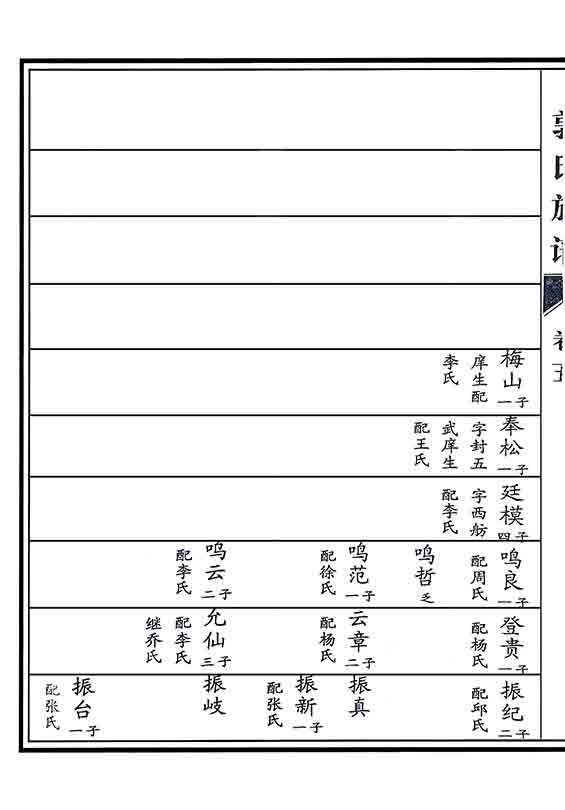 郭氏族谱
卷五
梅山
一子
庠生配
李氏
奉松
一子
字封五
武庠生
配王氏
廷模
四子
字西舫
配李氏
鸣良
一子
配周氏
鸣哲
乏
鸣范
一子
配徐氏
鸣云
二子
配李氏
登贵
一子
配杨氏
云章
二子
配杨氏
允仙
三子
配李氏
继乔氏
振纪
二子
配邱氏
振真
振新
一子
配张氏
振岐
振台
一子
配张氏